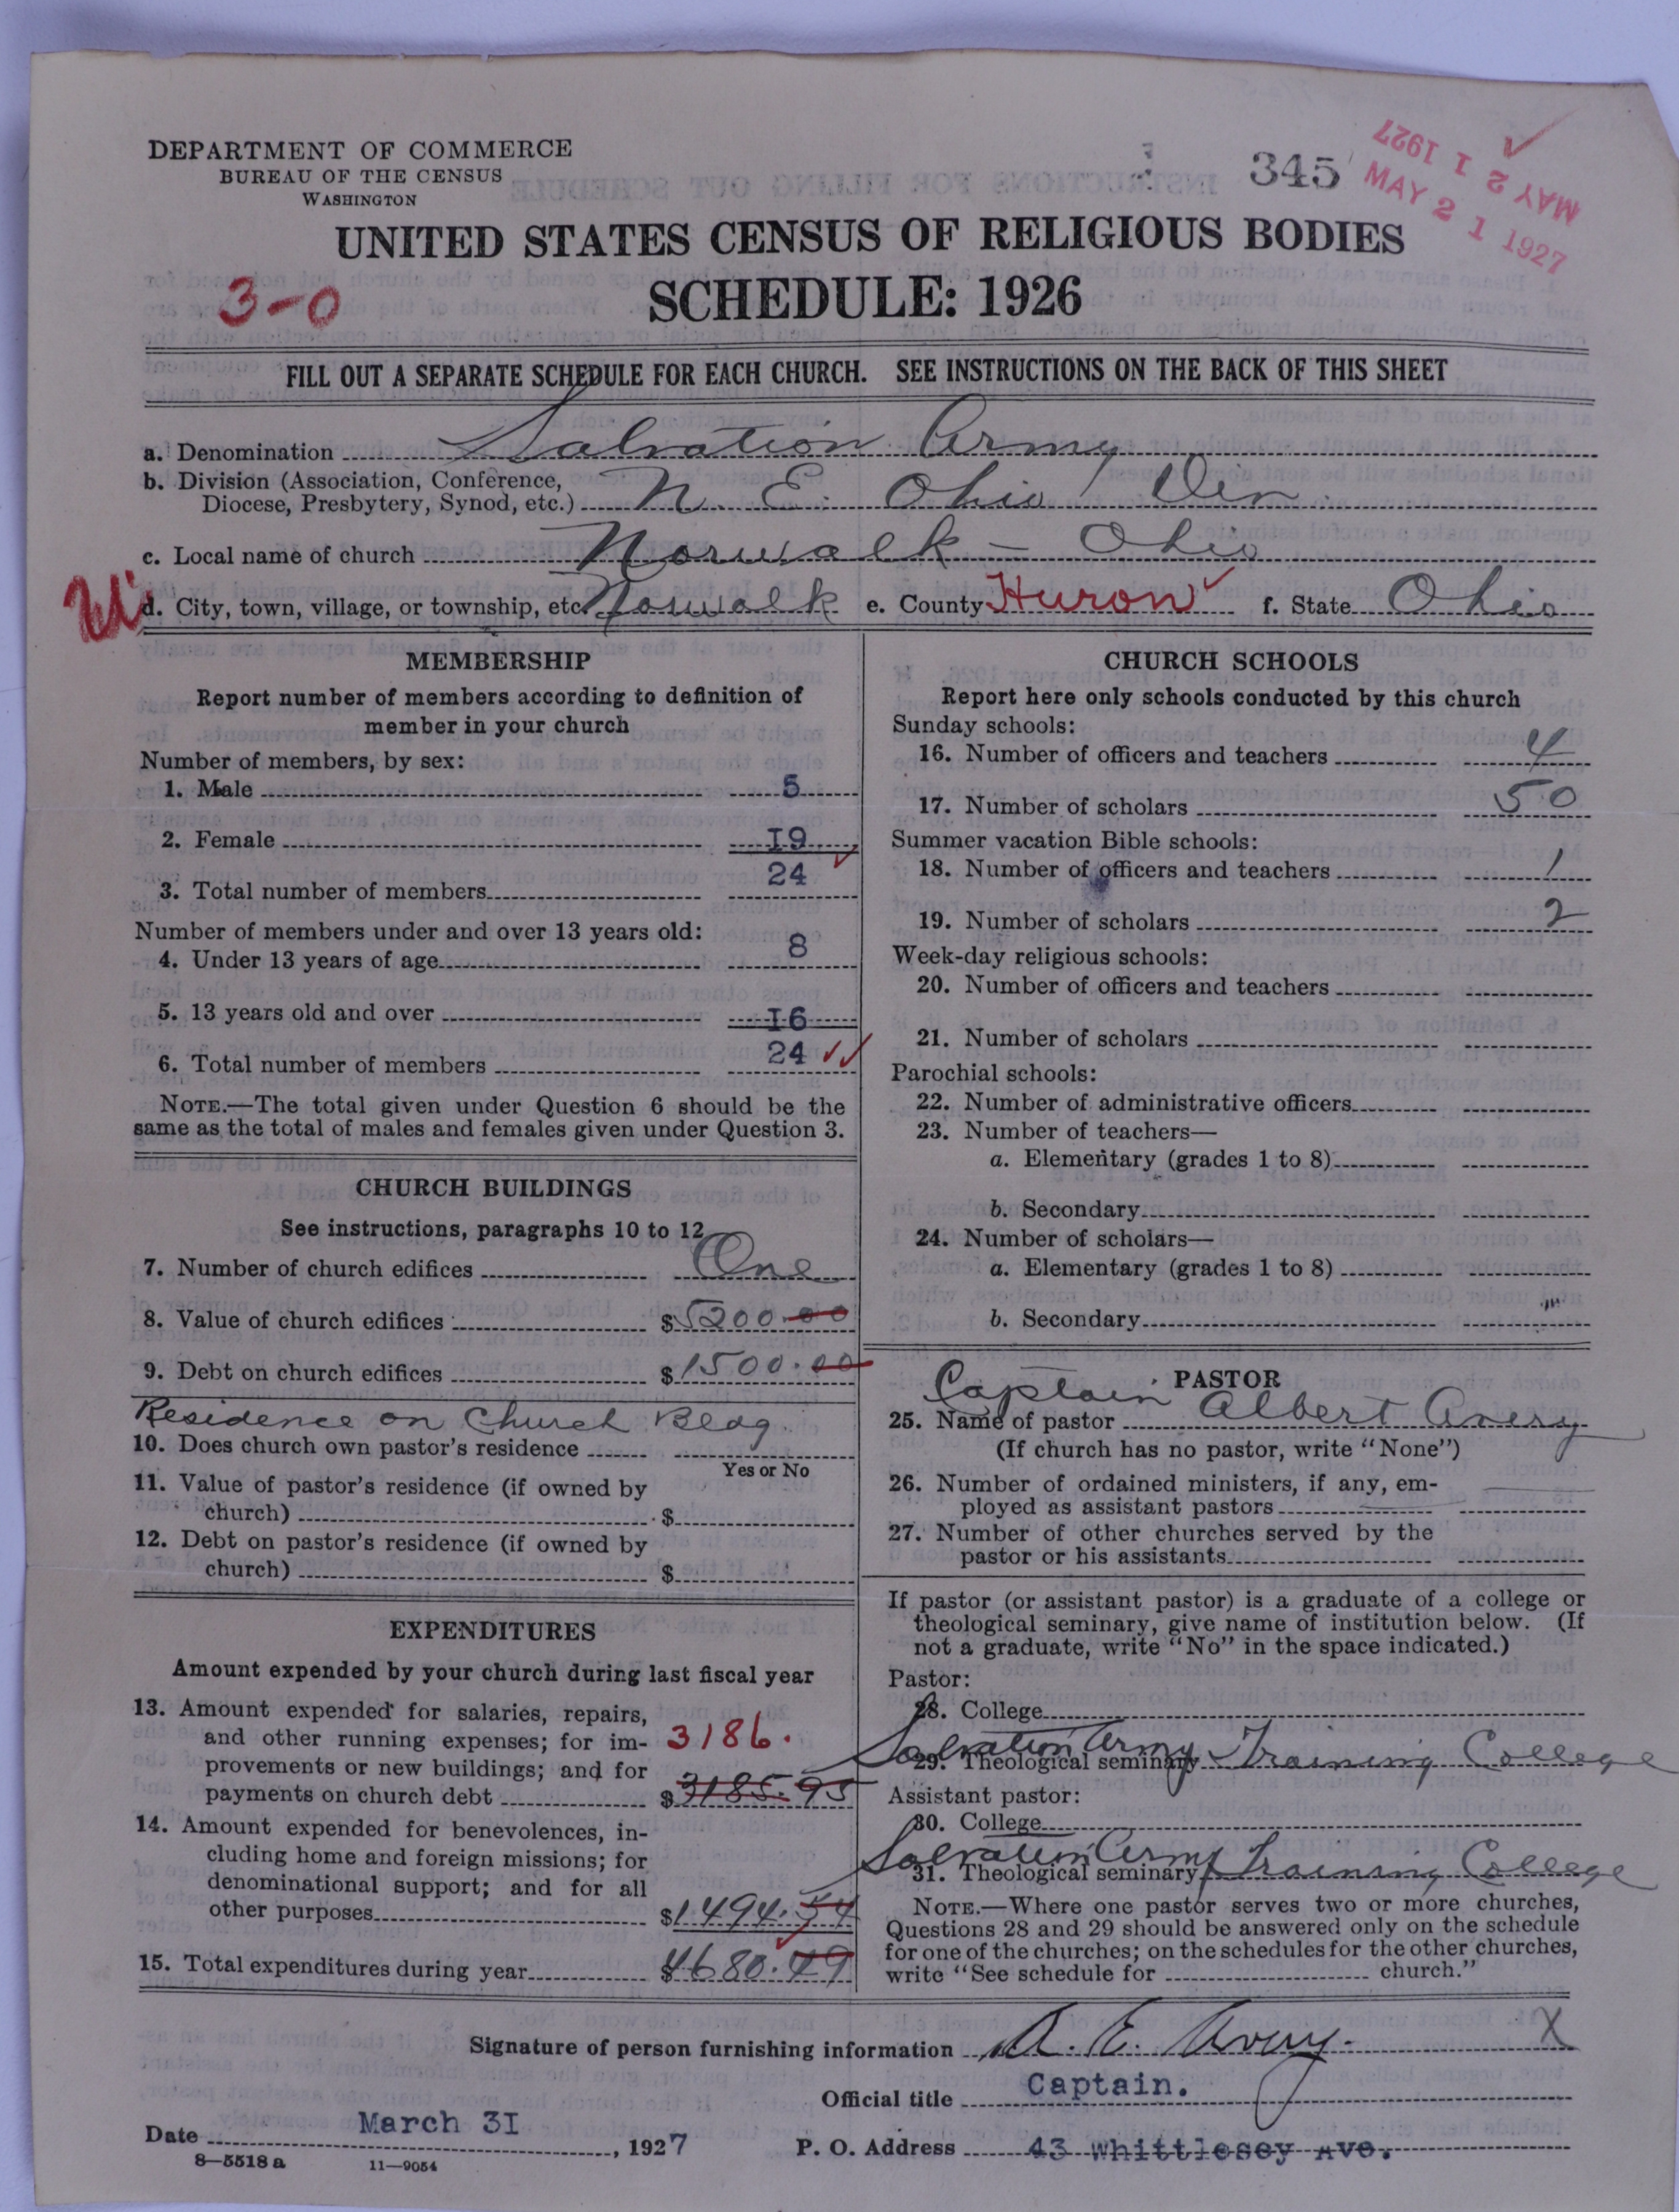 DEPARTMENT OF COMMERCE
BUREAU OF THE CENSUS
WASHINGTON
345
MAY 2 1 1927
MAY 2 1 1927
UNITED STATES CENSUS OF RELIGIOUS BODIES
3-0
SCHEDULE: 1926
FILL OUT A SEPARATE SCHEDULE FOR EACH CHURCH. SEE INSTRUCTIONS ON THE BACK OF THIS SHEET
a. Denomination Salvation Army
b. Division (Association, Conference,
Diocese, Presbytery, Synod, etc.) N. E. Ohio Div.
c. Local name of church Norwalk - Ohio
d. City, town, village, or township, etc. Norwalk e. County Huron f. State Ohio
MEMBERSHIP
Report number of members according to definition of
member in your church
Number of members, by sex:
1. Male 5
2. Female I9
3. Total number of members 24
Number of members under and over 13 years old:
4. Under 13 years of age 8
5. 13 years old and over I6
6. Total number of members 24
NOTE.—The total given under Question 6 should be the
same as the total of males and females given under Question 3.
CHURCH BUILDINGS
See instructions, paragraphs 10 to 12
7. Number of church edifices One
8. Value of church edifices $5200.00
9. Debt on church edifices $1500.00
Residence on Church Bldg.
10. Does church own pastor's residence
Yes or No
11. Value of pastor's residence (if owned by
church) $
12. Debt on pastor's residence (if owned by
church) $
EXPENDITURES
Amount expended by your church during last fiscal year
13. Amount expended for salaries, repairs,
and other running expenses; for im- 3186.
provements or new buildings; and for
payments on church debt $3185.95
14. Amount expended for benevolences, in-
cluding home and foreign missions; for
denominational support; and for all
other purposes $1494.54
15. Total expenditures during year $4680.49
CHURCH SCHOOLS
Report here only schools conducted by this church
Sunday schools:
16. Number of officers and teachers 4
17. Number of scholars 50
Summer vacation Bible schools:
18. Number of officers and teachers 1
19. Number of scholars 2
Week-day religious schools:
20. Number of officers and teachers
21. Number of scholars
Parochial schools:
22. Number of administrative officers
23. Number of teachers—
a. Elementary (grades 1 to 8)
b. Secondary
24. Number of scholars—
a. Elementary (grades 1 to 8)
b. Secondary
PASTOR
25. Name of pastor Captain Albert Avery
(If church has no pastor, write "None")
26. Number of ordained ministers, if any, em-
ployed as assistant pastors
27. Number of other churches served by the
pastor or his assistants
If pastor (or assistant pastor) is a graduate of a college or
theological seminary, give name of institution below. (If
not a graduate, write "No" in the space indicated.)
Pastor:
28. College
29. Theological seminary Salvation Army Training College
Assistant pastor:
30. College
31. Theological seminary Salvation Army Training College
NOTE.—Where one pastor serves two or more churches,
Questions 28 and 29 should be answered only on the schedule
for one of the churches; on the schedules for the other churches,
write "See schedule for church."
Signature of person furnishing information A. E. Avery. X
Official title Captain.
Date March 3I, 1927 P. O. Address 43 Whittlesey Ave.
8—5518 a 11—9054